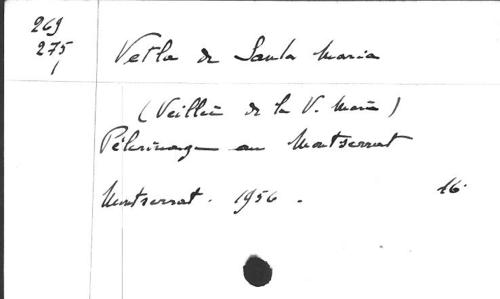 269
275
1
Vetla de Santa Maria
(Veillée de la V. Marie)
Pèlerinage au Montserrat
Montserrat. 1956. 16.